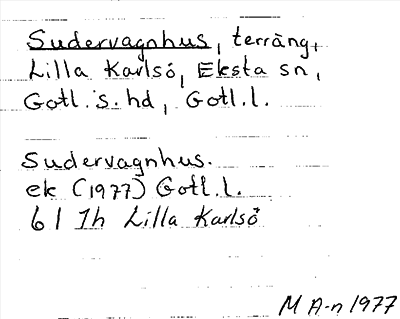 Sudervagnhus, terräng,
Lilla Karlsö, Eksta sn,
Gotl. s. hd, Gotl. l.
Sudervagnhus.
ek (1977) Gotl. l.
6 I 1h Lilla Karlsö
M A-n 1977